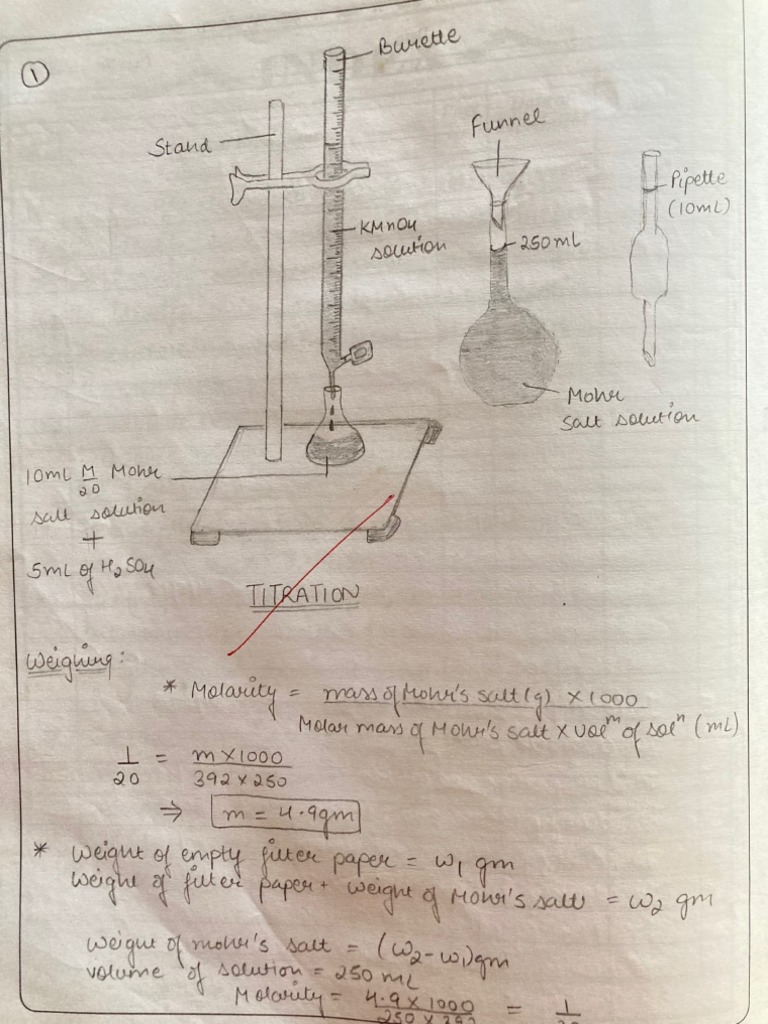 ①
Burette
Stand
Funnel
Pipette
(10mL)
KMnO4
solution
250ml
Mohr
salt solution
10mL M/20 Mohr
salt solution
+
5mL of H2SO4
TITRATION
Weighing:
* Molarity = mass of Mohr's salt (g) × 1000 / Molar mass of Mohr's salt × volᵐ of solⁿ (mL)
1/20 = m×1000 / 392×250
⇒ m = 4.9gm
* Weight of empty filter paper = w1 gm
Weight of filter paper + weight of Mohr's salt = w2 gm
Weight of mohr's salt = (w2-w1)gm
volume of solution = 250 mL
Molarity = 4.9×1000 / 250×392 = 1/20